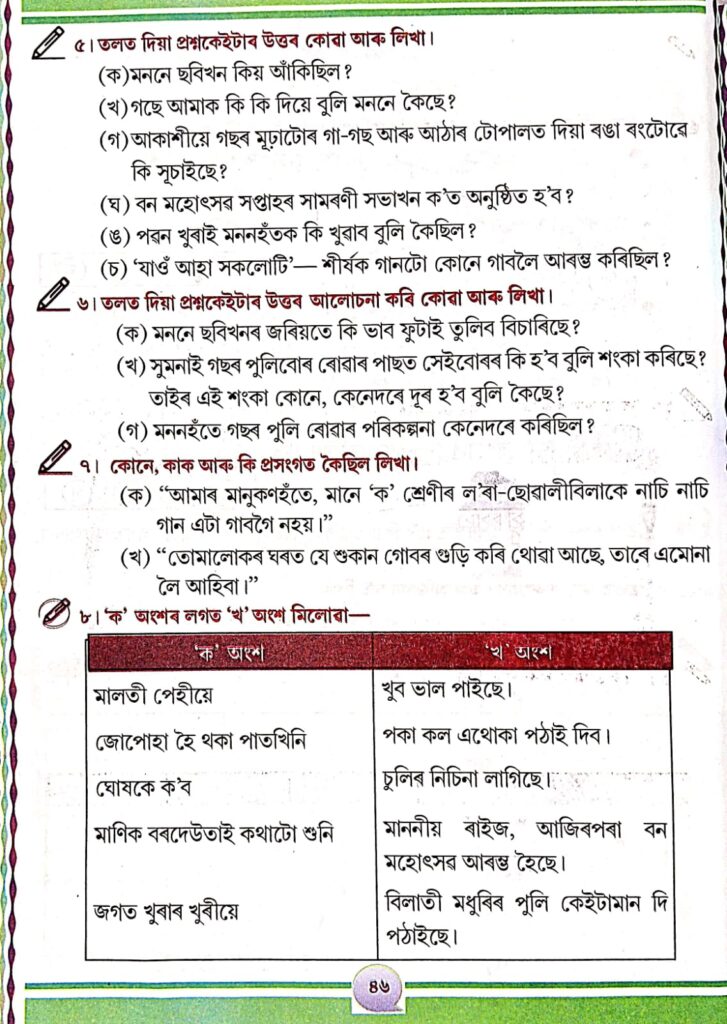 ৫। তলত দিয়া প্ৰশ্নকেইটাৰ উত্তৰ কোৱা আৰু লিখা।
(ক) মননে ছবিখন কিয় আঁকিছিল?
(খ) গছে আমাক কি কি দিয়ে বুলি মননে কৈছে?
(গ) আকাশীয়ে গছৰ মূঢ়াটোৰ গা-গছ আৰু আঠাৰ টোপালত দিয়া ৰঙা ৰংটোৱে
কি সূচাইছে?
(ঘ) বন মহোৎসৱ সপ্তাহৰ সামৰণী সভাখন ক'ত অনুষ্ঠিত হ'ব?
(ঙ) পৱন খুৰাই মননহঁতক কি খুৱাব বুলি কৈছিল?
(চ) 'যাওঁ আহা সকলোটি'— শীৰ্ষক গানটো কোনে গাবলৈ আৰম্ভ কৰিছিল?
৬। তলত দিয়া প্ৰশ্নকেইটাৰ উত্তৰ আলোচনা কৰি কোৱা আৰু লিখা।
(ক) মননে ছবিখনৰ জৰিয়তে কি ভাব ফুটাই তুলিব বিচাৰিছে?
(খ) সুমনাই গছৰ পুলিবোৰ ৰোৱাৰ পাছত সেইবোৰৰ কি হ'ব বুলি শংকা কৰিছে?
তাইৰ এই শংকা কোনে, কেনেদৰে দূৰ হ'ব বুলি কৈছে?
(গ) মননহঁতে গছৰ পুলি ৰোৱাৰ পৰিকল্পনা কেনেদৰে কৰিছিল?
৭। কোনে, কাক আৰু কি প্ৰসংগত কৈছিল লিখা।
(ক) "আমাৰ মানুকণহঁতে, মানে 'ক' শ্ৰেণীৰ ল'ৰা-ছোৱালীবিলাকে নাচি নাচি
গান এটা গাবগৈ নহয়।"
(খ) "তোমালোকৰ ঘৰত যে শুকান গোবৰ গুড়ি কৰি থোৱা আছে, তাৰে এমোনা
লৈ আহিবা।"
৮। 'ক' অংশৰ লগত 'খ' অংশ মিলোৱা—
'ক' অংশ 'খ' অংশ
মালতী পেহীয়ে খুব ভাল পাইছে।
জোপোহা হৈ থকা পাতখিনি পকা কল এথোকা পঠাই দিব।
ঘোষকে ক'ব চুলিৰ নিচিনা লাগিছে।
মাণিক বৰদেউতাই কথাটো শুনি মাননীয় ৰাইজ, আজিৰপৰা বন
মহোৎসৱ আৰম্ভ হৈছে।
জগত খুৰাৰ খুৰীয়ে বিলাতী মধুৰিৰ পুলি কেইটামান দি
পঠাইছে।
৪৬